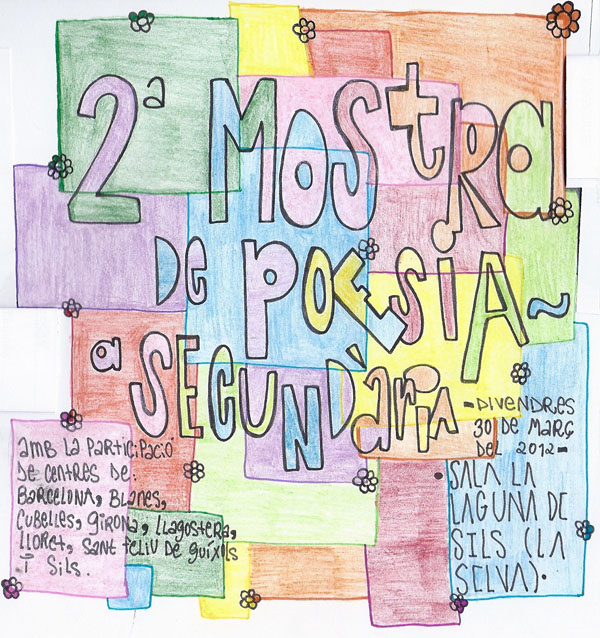 2ª MOSTRA
DE POESIA~
a SECUNDÀRIA
-DIVENDRES
30 DE MARÇ
DEL 2012-
• SALA LA
LAGUNA DE
SILS (LA
SELVA).
amb la participació
de centres de:
Barcelona, Blanes,
Cubelles, Girona, Llagostera,
Lloret, Sant Feliu de Guíxols
i Sils.